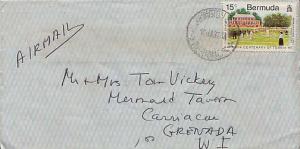 15c Bermuda
CENTENARY OF TENNIS
AIRMAIL
Mr + Mrs Tom Vickey
Mermaid Tavern
Carriacou
GRENADA
W I